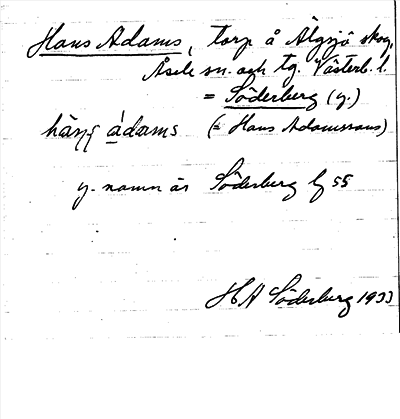 Hans Adams, torp å Älgsjö skog,
Åsele sn. och tg. Västerb. l.
= Söderberg (y.)
hàŋs ádams (= Hans Adamssons)
y. namn är Söderberg lf 55
H A Söderberg 1933